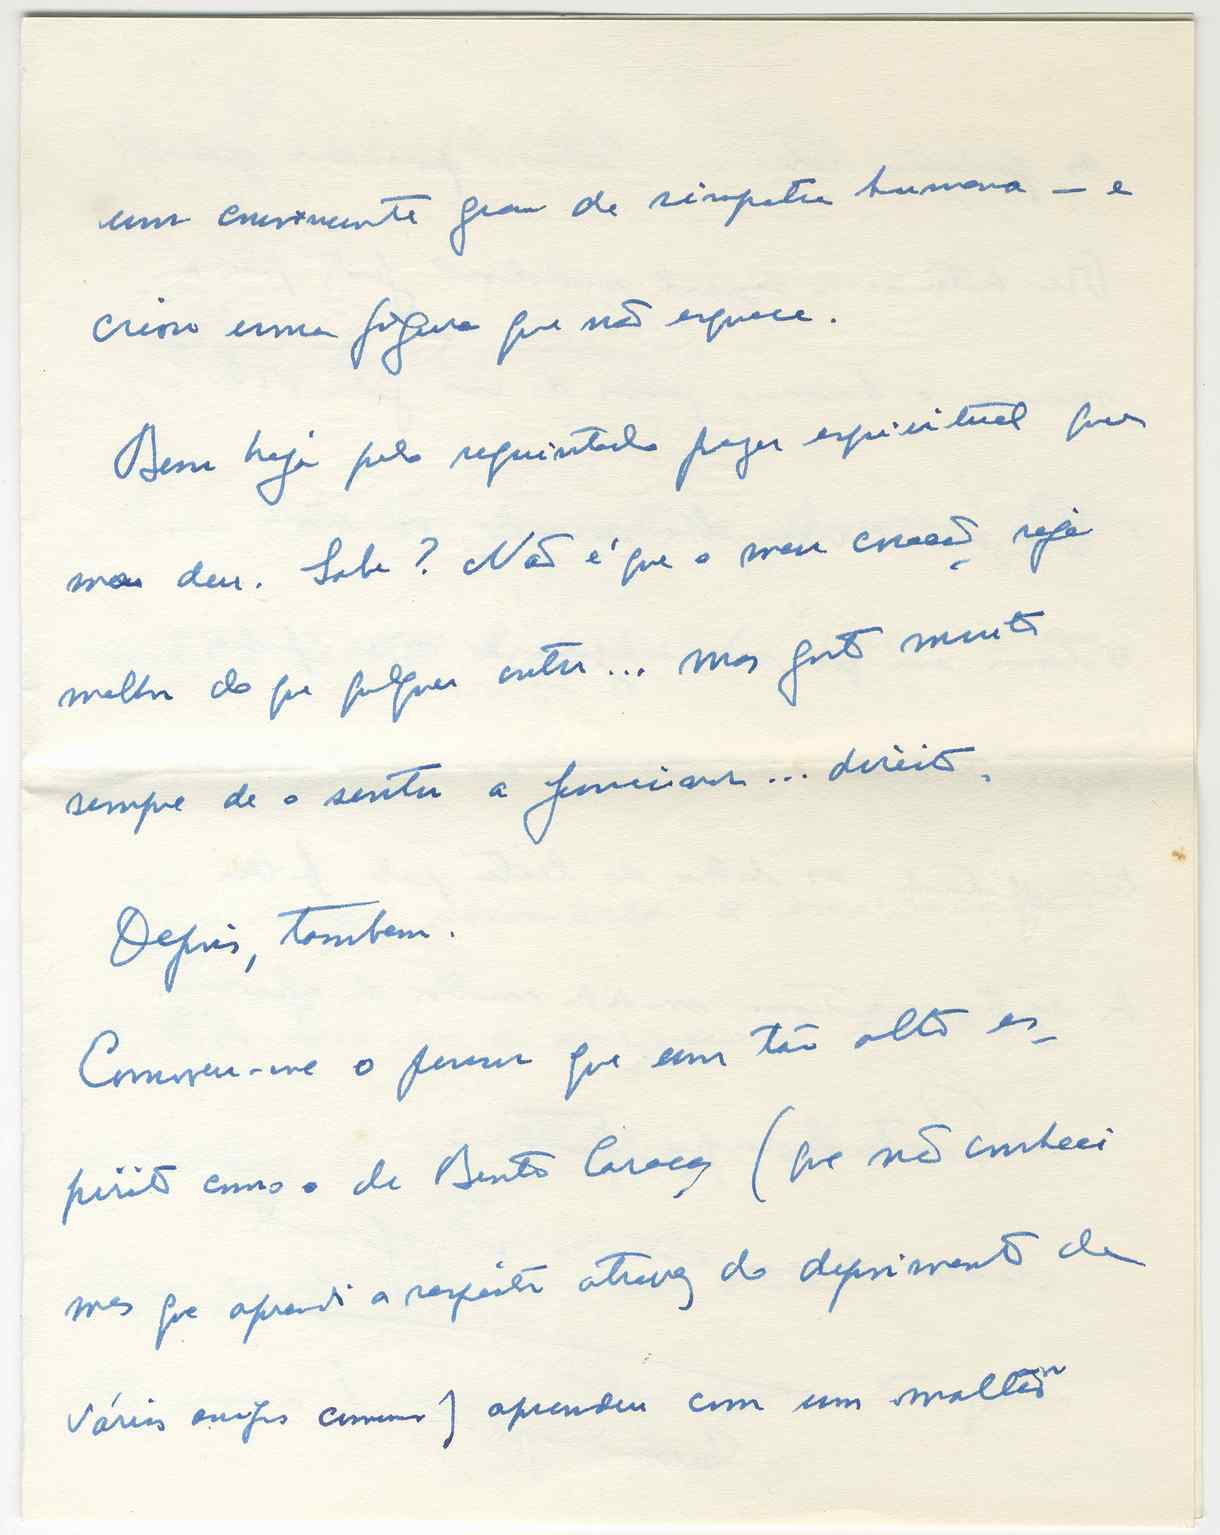 um comovente grau de simpatia humana — e
criou uma figura que não esquece.
Bem haja pelo requintado prazer espiritual que
me deu. Sabe? Não é que o meu coração seja
melhor do que qualquer outro... mas gosto muito
sempre de o sentir a funcionar... direito.
Depois, tambem.
Comoveu-me o pensar que um tão alto es-
pirito como o de Bento Caraça (que não conheci
mas que aprendi a respeitar atravez do depoimento de
vários amigos comuns) aprendeu com um "maltês"